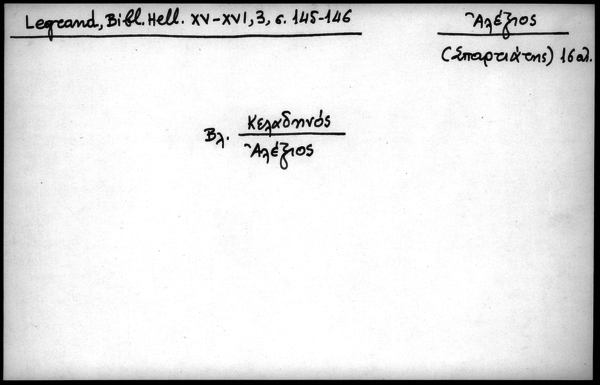 Legrand, Bibl. Hell. XV-XVI, 3, σ. 145-146
Ἀλέζιος
(Σπαρτιάτης) 16 αἰ.
Βλ. Κελαδηνός
Ἀλέζιος